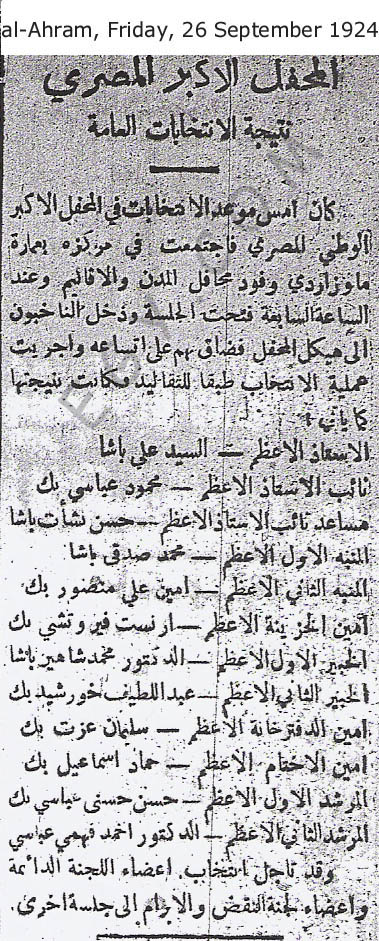 al-Ahram, Friday, 26 September 1924
المحفل الاكبر المصري
نتيجة الانتخابات العامة
كان امس موعد الانتخابات في المحفل الاكبر
الوطني المصري فاجتمعت في مركزه بعمارة
ماوزاردي وفود محافل المدن والاقاليم وعند
الساعة السابعة فتحت الجلسة ودخل الناخبون
الى هيكل المحفل فضاق بهم على اتساعه واجريت
عملية الانتخاب طبقا للتقاليد فكانت نتيجتها
كما يأتي :
الاستاذ الاعظم — السيد علي باشا
نائب الاستاذ الاعظم — محمود عباسي بك
مساعد نائب الاستاذ الاعظم — حسن نشأت باشا
المنبه الاول الاعظم — محمد صدقي باشا
المنبه الثاني الاعظم — امين علي منصور بك
امين الخزينة الاعظم — ارنست فيروتشي بك
الخبير الاول الاعظم — الدكتور محمد شاهين باشا
الخبير الثاني الاعظم — عبد اللطيف خورشيد بك
امين الدفترخانة الاعظم — سليمان عزت بك
امين الاختام الاعظم — حماد اسماعيل بك
المرشد الاول الاعظم — حسن حسني عباسي بك
المرشد الثاني الاعظم — الدكتور احمد فهمي عباسي
وقد تأجل انتخاب اعضاء اللجنة الدائمة
واعضاء لجنة النقض والابرام الى جلسة اخرى.